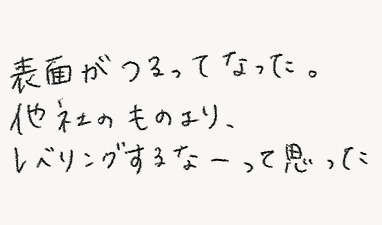 表面がつるってなった。
他社のものより、
レベリングするなーって思った